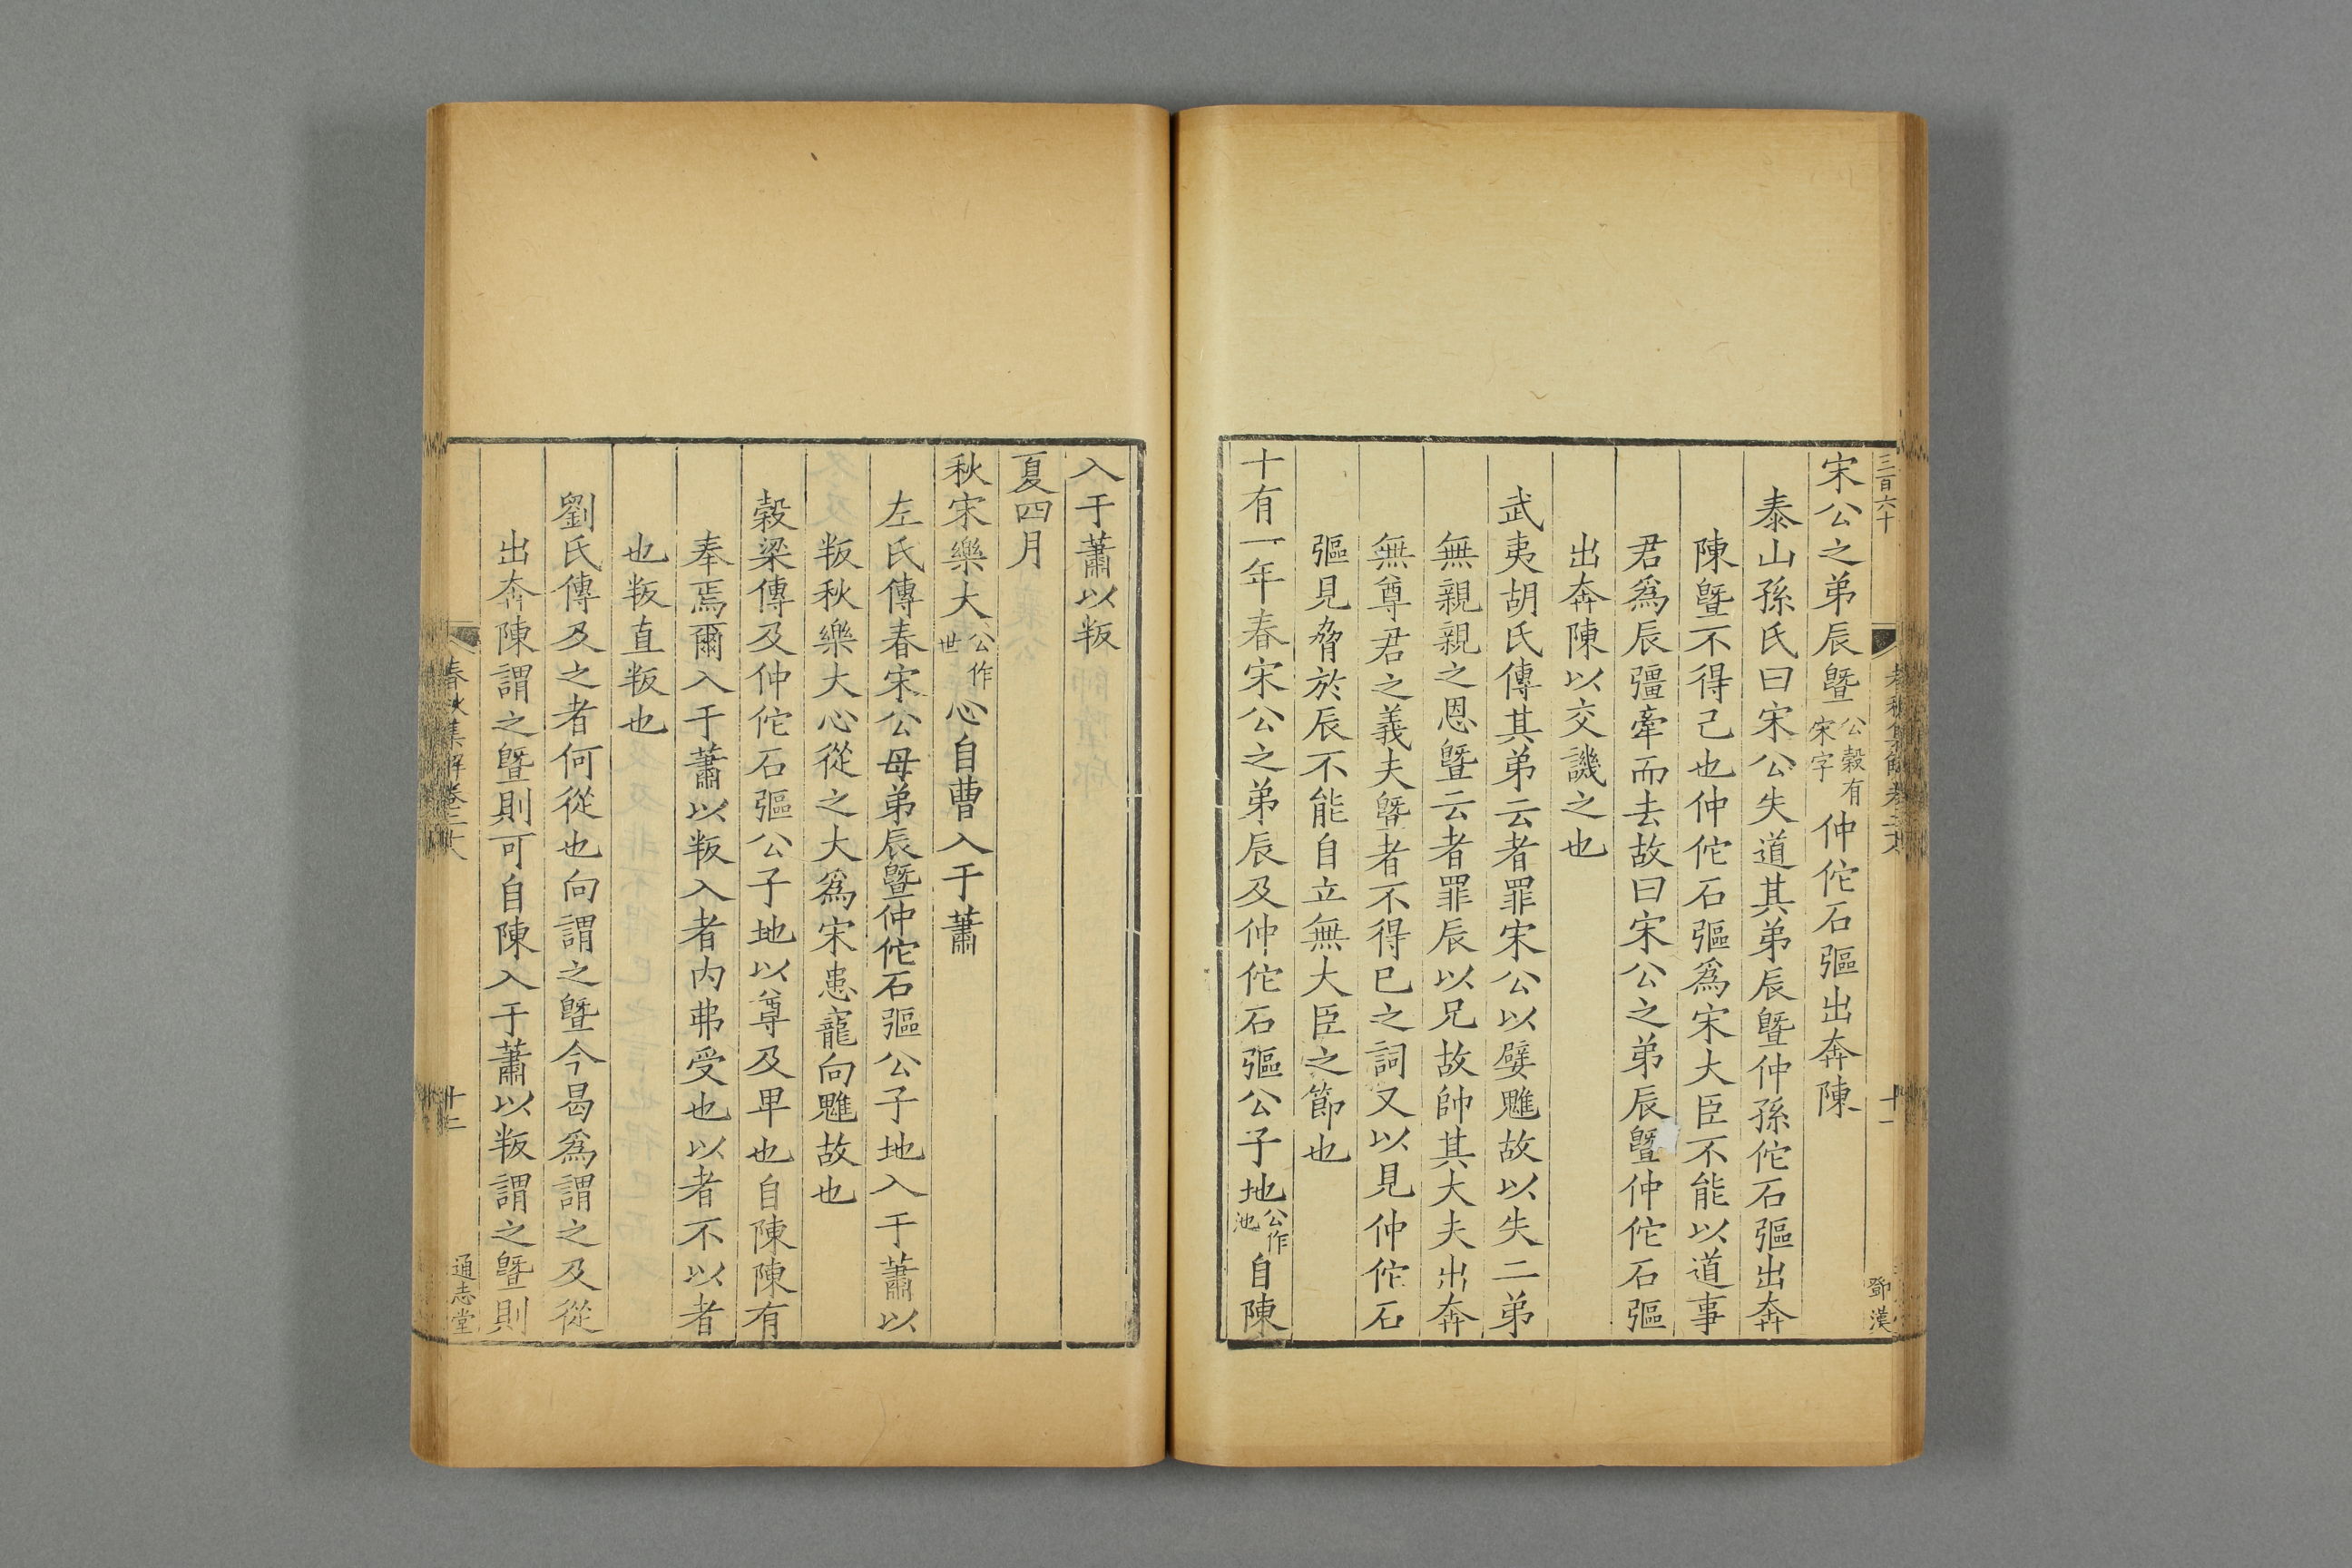 三百六十
鄧漢
宋公之弟辰曁公穀有宋字仲佗石彄出奔陳
泰山孫氏曰宋公失道其弟辰曁仲孫佗石彄出奔
陳曁不得已也仲佗石彄爲宋大臣不能以道事
君爲辰彊牽而去故曰宋公之弟辰曁仲佗石彄
出奔陳以交譏之也
武夷胡氏傳其弟云者罪宋公以嬖魋故以失二弟
無親親之恩曁云者罪辰以兄故帥其大夫出奔
無尊君之義夫曁者不得已之詞又以見仲佗石
彄見脅於辰不能自立無大臣之節也
十有一年春宋公之弟辰及仲佗石彄公子地公作池自陳
入于蕭以叛
夏四月
秋宋樂大公作世心自曹入于蕭
左氏傳春宋公母弟辰曁仲佗石彄公子地入于蕭以
叛秋樂大心從之大爲宋患寵向魋故也
穀梁傳及仲佗石彄公子地以尊及卑也自陳陳有
奉焉爾入于蕭以叛入者內弗受也以者不以者
也叛直叛也
劉氏傳及之者何從也向謂之曁今曷爲謂之及從
出奔陳謂之曁則可自陳入于蕭以叛謂之曁則
春秋集解卷二十六
十二
通志堂